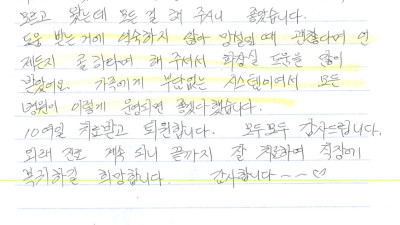 모르고 왔는데 모든 걸 해 주시니 좋았습니다.
도움 받는거에 익숙하지 않아 망설일 때 괜찮다며 언
제든지 콜 하라며 해 주셔서 화장실 도움을 많이
받았어요. 가족에게 부담없는 시스템이여서 모든
병원이 이렇게 운영되면 좋겠다 했습니다.
10여일 치료받고 퇴원합니다. 모두모두 감사드립니다.
외래 진료 계속 되니 끝까지 잘 치료하여 직장에
복귀하길 희망합니다. 감사합니다~~♡